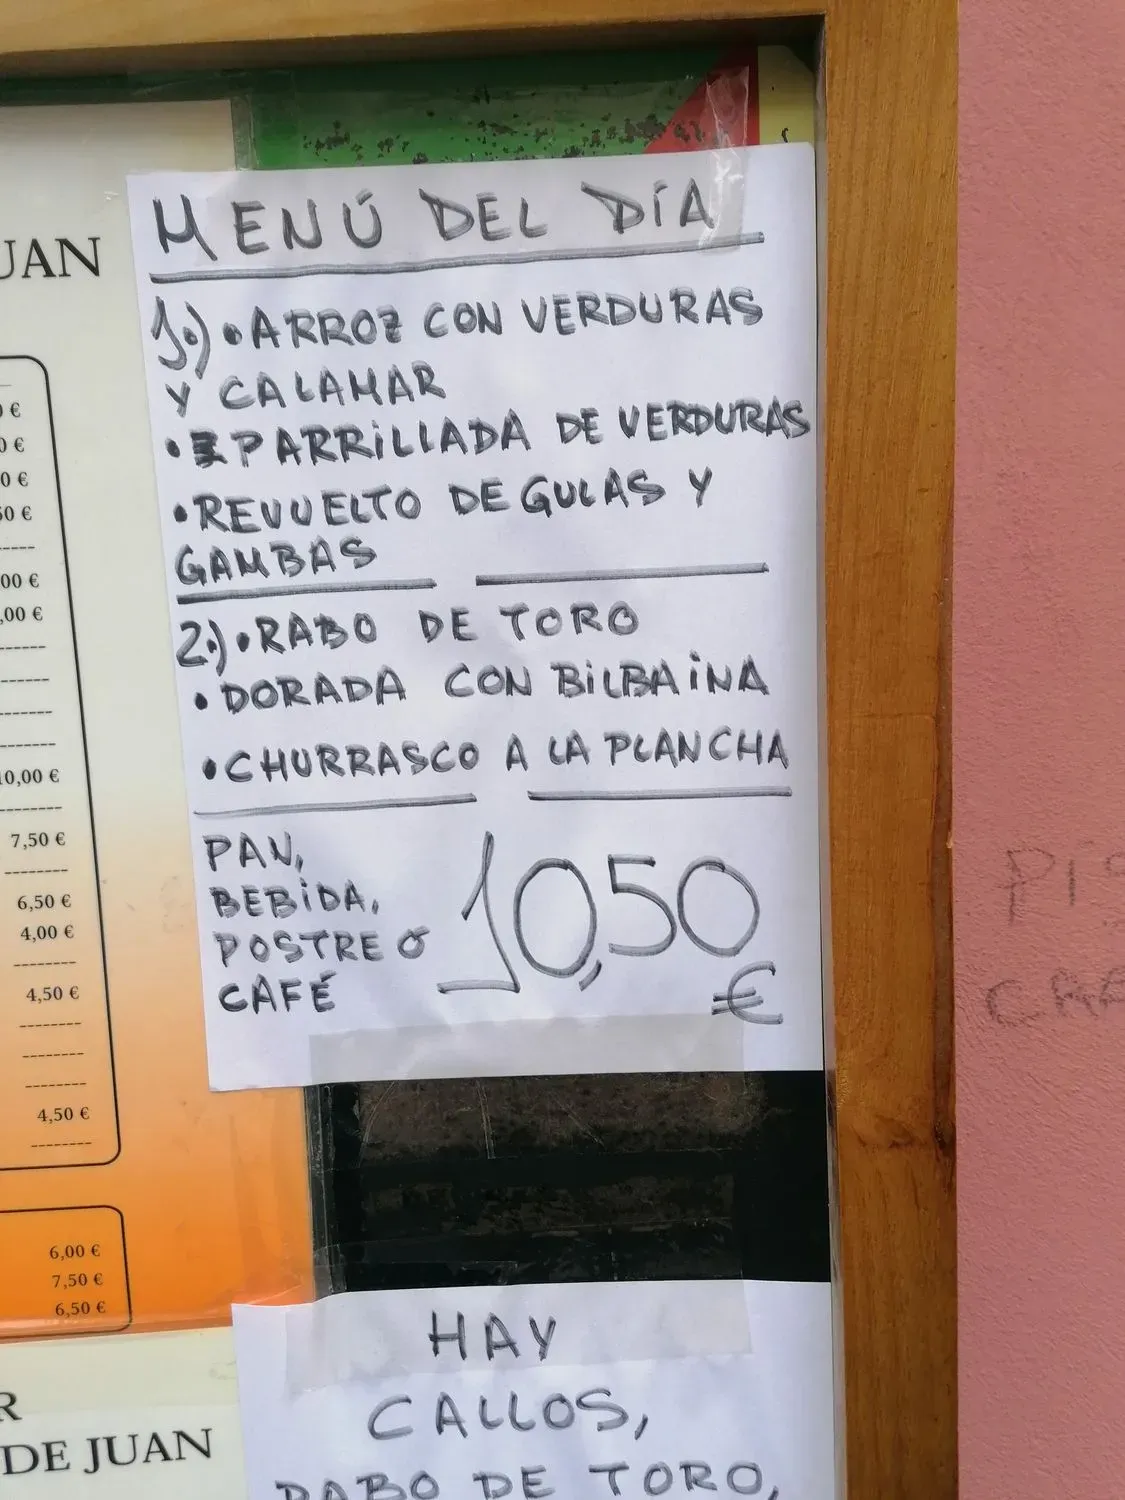 MENÚ DEL DÍA
1º) • ARROZ CON VERDURAS
Y CALAMAR
• PARRILLADA DE VERDURAS
• REVUELTO DE GULAS Y
GAMBAS
2º) • RABO DE TORO
• DORADA CON BILBAINA
• CHURRASCO A LA PLANCHA
PAN,
BEBIDA,
POSTRE Ó
CAFÉ
10,50
€
HAY
CALLOS,
RABO DE TORO,
UAN
0 €
0 €
0 €
50 €
00 €
,00 €
10,00 €
7,50 €
6,50 €
4,00 €
4,50 €
4,50 €
6,00 €
7,50 €
6,50 €
R
DE JUAN